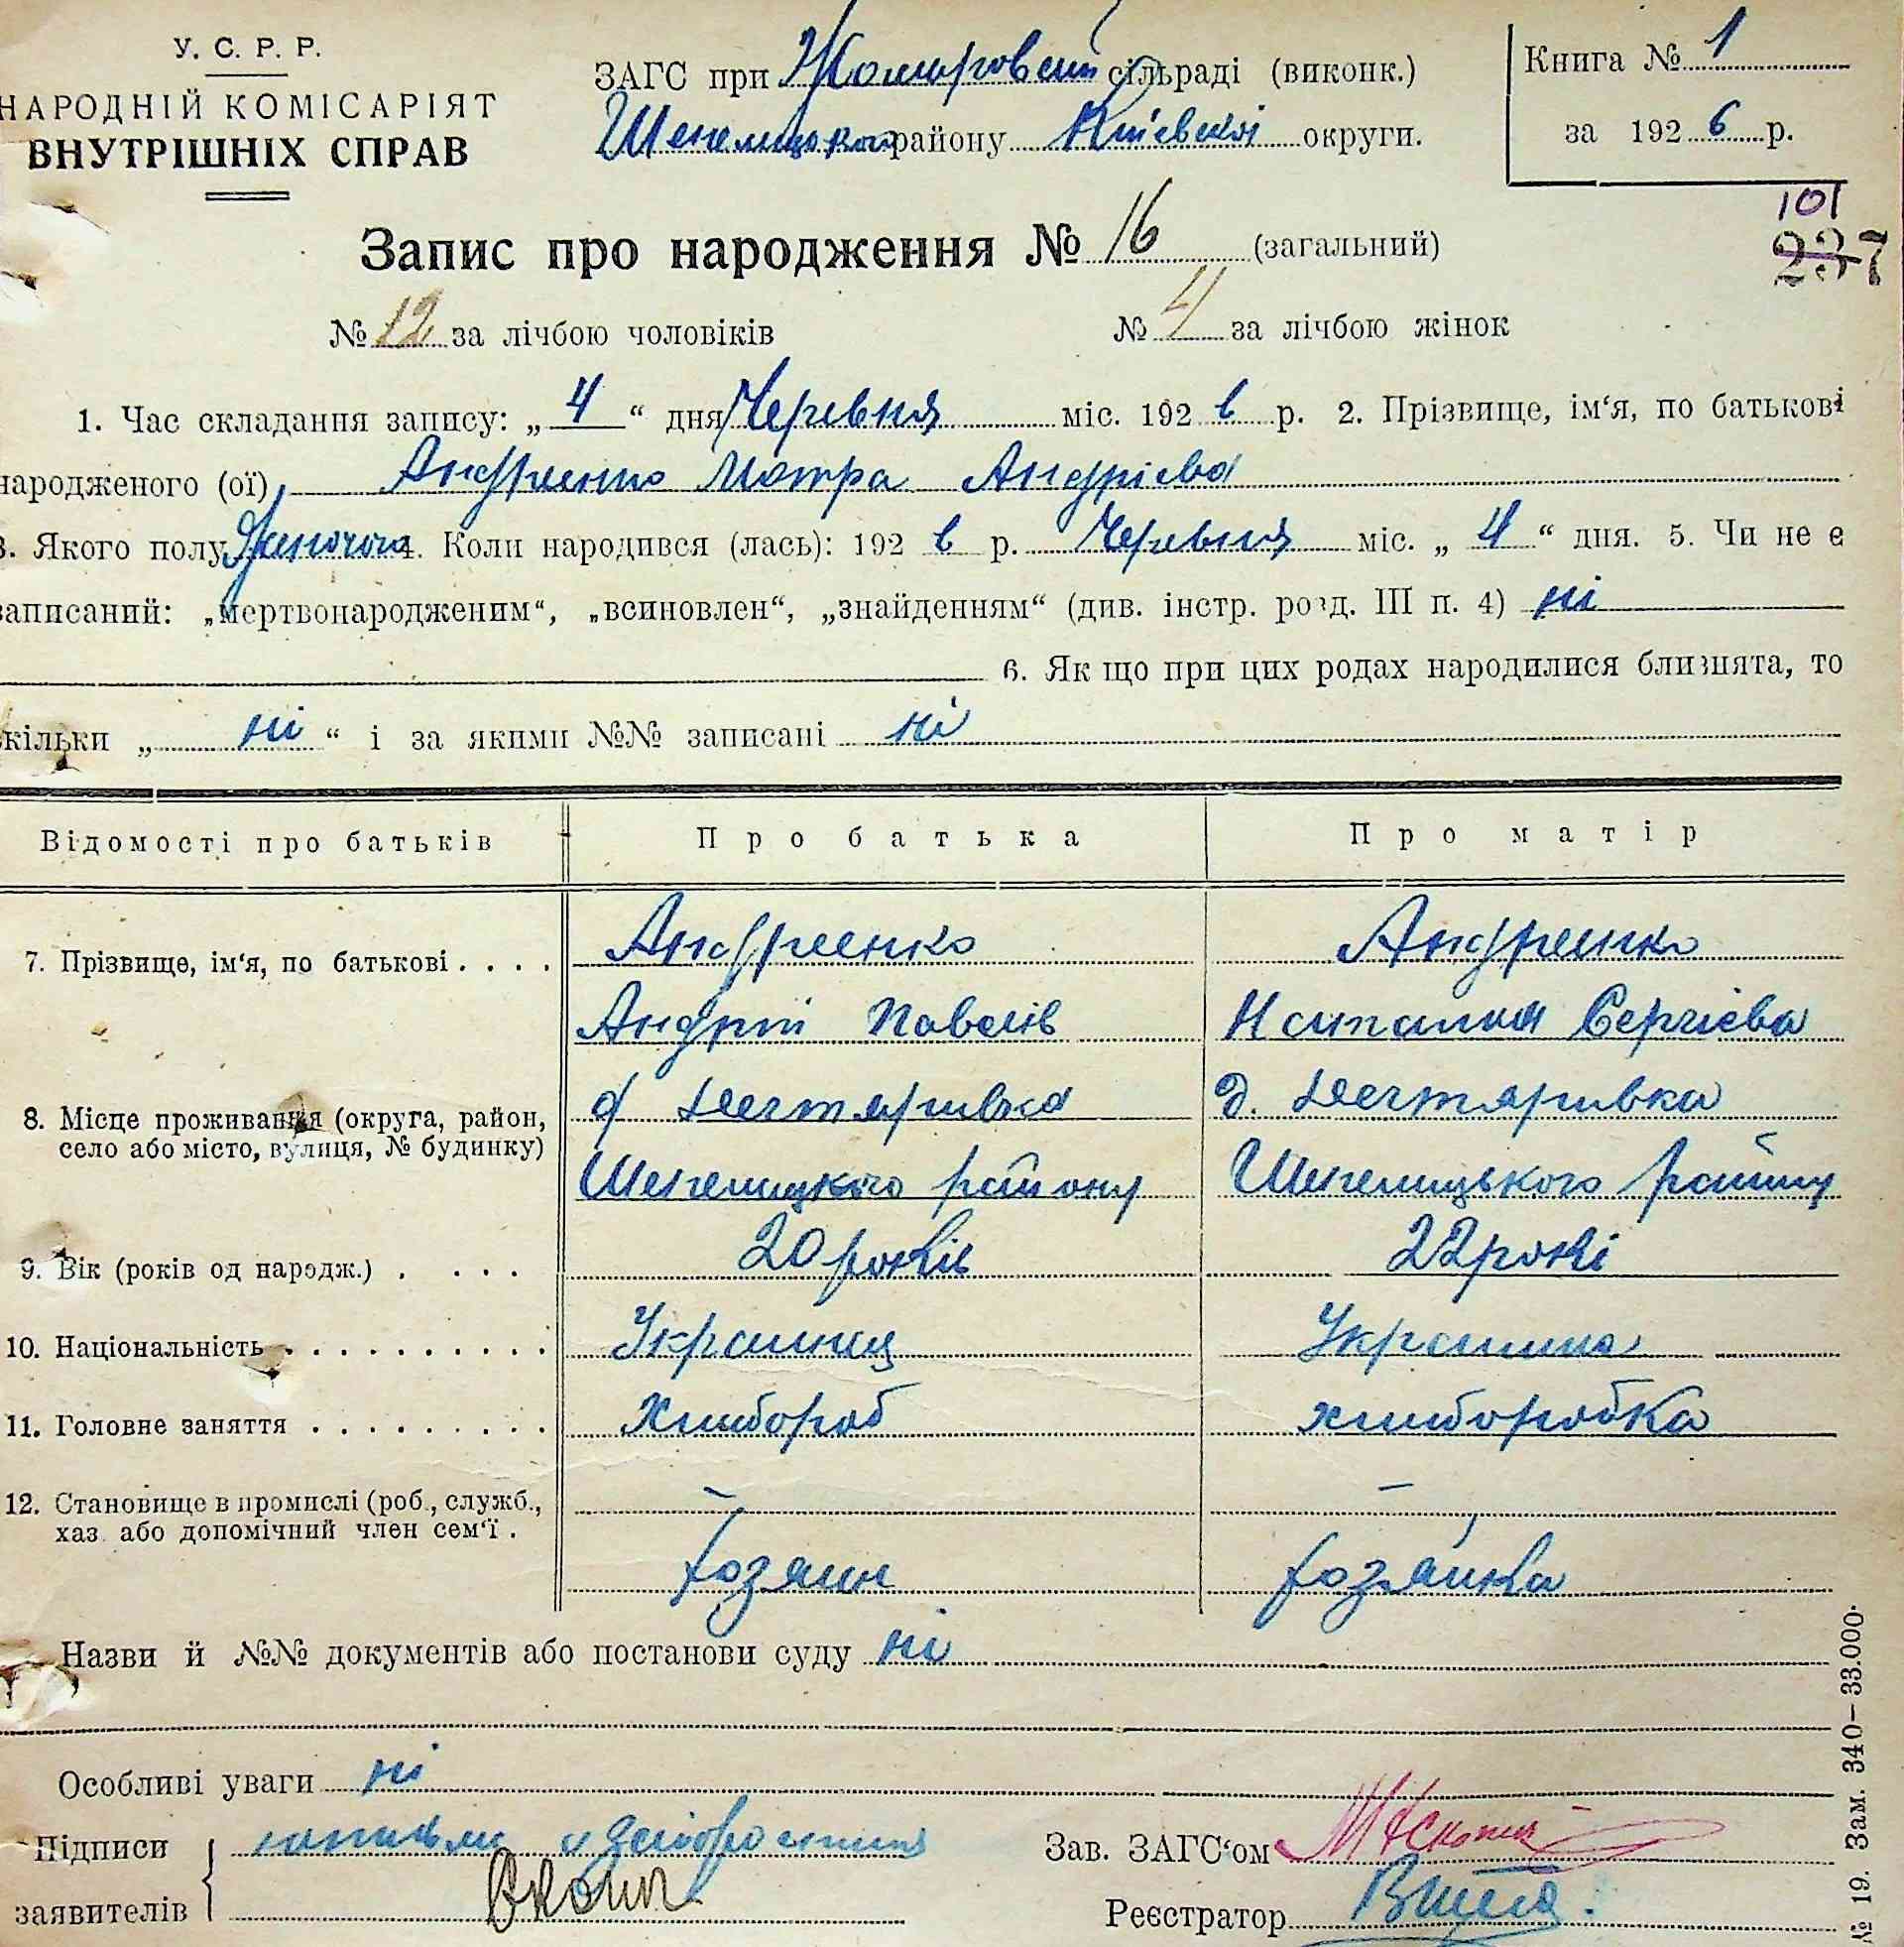 У. С. Р. Р.
НАРОДНІЙ КОМІСАРІЯТ
ВНУТРІШНІХ СПРАВ
ЗАГС при сільраді (виконк.)
Шепелицького району Київської округи.
Книга № 1
за 1926 р.
101
237
Запис про народження № 16 (загальний)
№ 12 за лічбою чоловіків № 4 за лічбою жінок
1. Час складання запису: „ 4 “ дня Червня міс. 192 6 р. 2. Прізвище, ім‘я, по батькові
народженого (ої) Андреенко Мотра Андріева
3. Якого полу Жіночого 4. Коли народився (лась): 192 6 р. Червня міс. „ 4 “ дня. 5. Чи не є
записаний: „мертвонародженим“, „всиновлен“, „знайденням“ (див. інстр. розд. III п. 4) ні
6. Як що при цих родах народилися близнята, то
скільки „ ні “ і за якими №№ записані ні
Відомості про батьків Про батька Про матір
7. Прізвище, ім‘я, по батькові . . . . Андреенко Андреенко
Андрій Павлів Наталия Сергіева
8. Місце проживання (округа, район, д Дегтяривка д. Дегтяривка
село або місто, вулиця, № будинку)
Шепелицького району Шепелицького району
9. Вік (років од народж.) . . . . 20 років 22 роки
10. Національність . . . . . . . . . . Украинец Украинка
11. Головне заняття . . . . . . . . . Хлибороб хлиборобка
12. Становище в промислі (роб., служб., – –
хаз. або допомічний член сем‘ї . хозяин хозяйка
Назви й №№ документів або постанови суду ні
Особливі уваги ні
Підписи
заявителів
Зав. ЗАГС‘ом
Реєстратор
№ 19. Зам. 340–33.000.